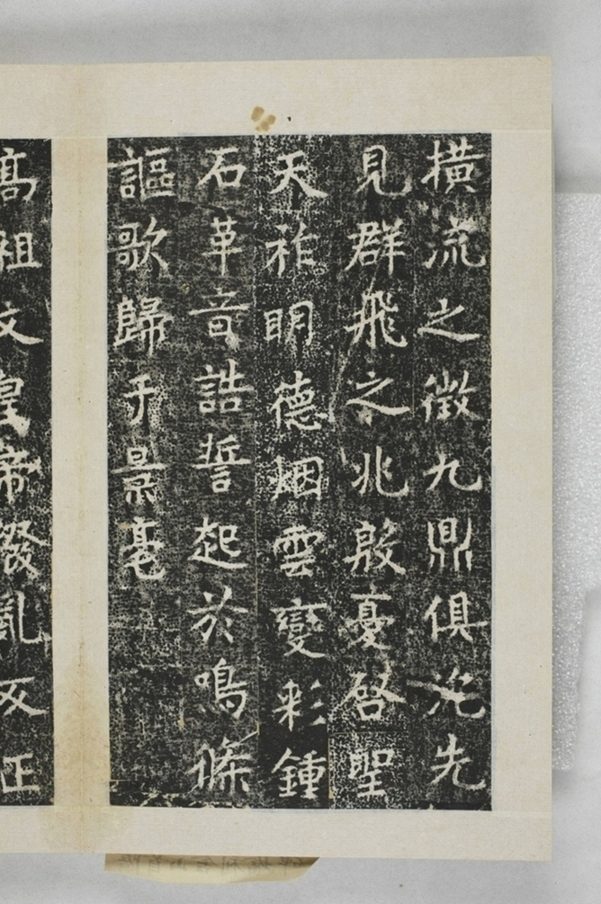 橫流之徵九鼎俱淪先
見群飛之兆殷憂啓聖
天祚明德烟雲變彩鍾
石革音誥誓起於鳴條
謳歌歸乎景亳
高祖文皇帝撥亂反正